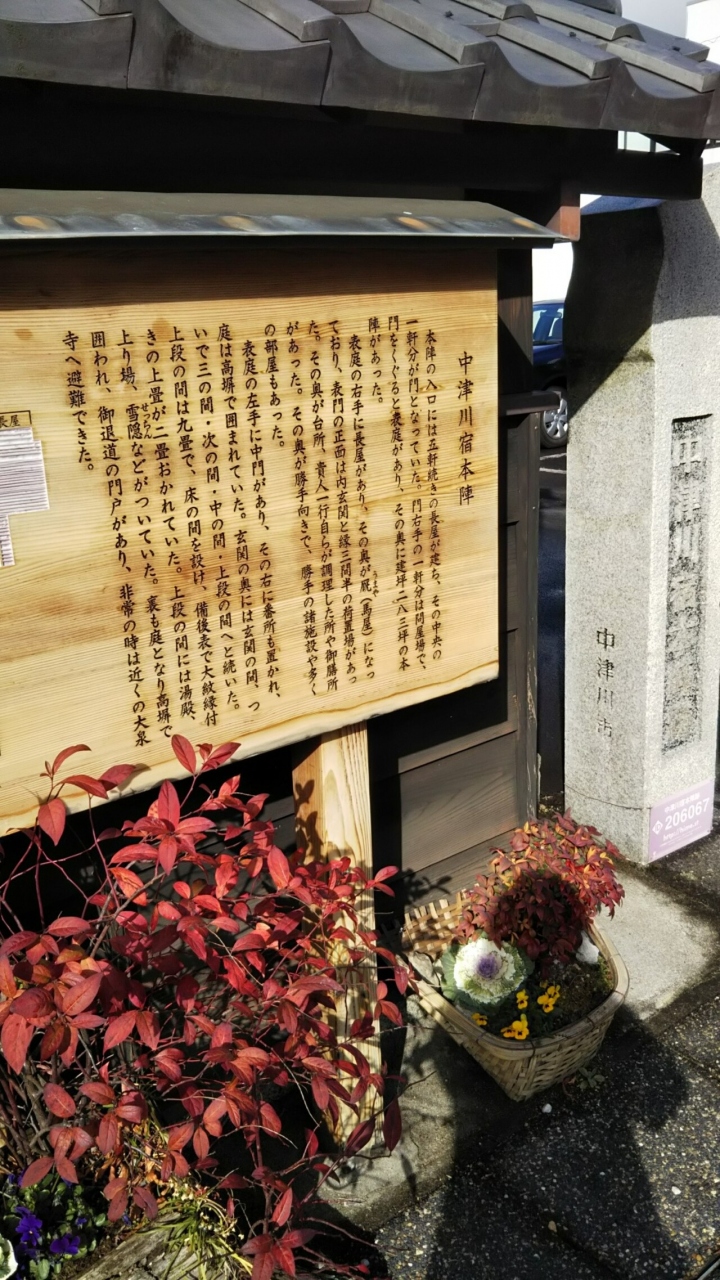 中津川宿本陣
本陣の入口には五軒続きの長屋が建ち、その中央の
一軒分が門となっていた。門右手の一軒分は問屋場で、
門をくぐると表庭があり、その奥に建坪二八三坪の本
陣があった。
表庭の右手に長屋があり、その奥が厩(馬屋)になっ
うまや
ており、表門の正面は内玄関と縁三間半の荷置場があっ
た。その奥が台所、貴人一行自らが調理した所や御膳所
があった。その奥が勝手向きで、勝手の諸施設や多く
の部屋もあった。
表庭の左手に中門があり、その右に番所も置かれ、
庭は高塀で囲まれていた。玄関の奥には玄関の間、つ
いで三の間・次の間・中の間・上段の間へと続いた。
上段の間は九畳で、床の間を設け、備後表で大紋縁付
きの上畳が二畳おかれていた。上段の間には湯殿、
上り場、雪隠などがついていた。裏も庭となり高塀で
せっちん
囲われ、御退道の門戸があり、非常の時は近くの大泉
寺へ避難できた。
長屋
中津川宿
中津川市
206067